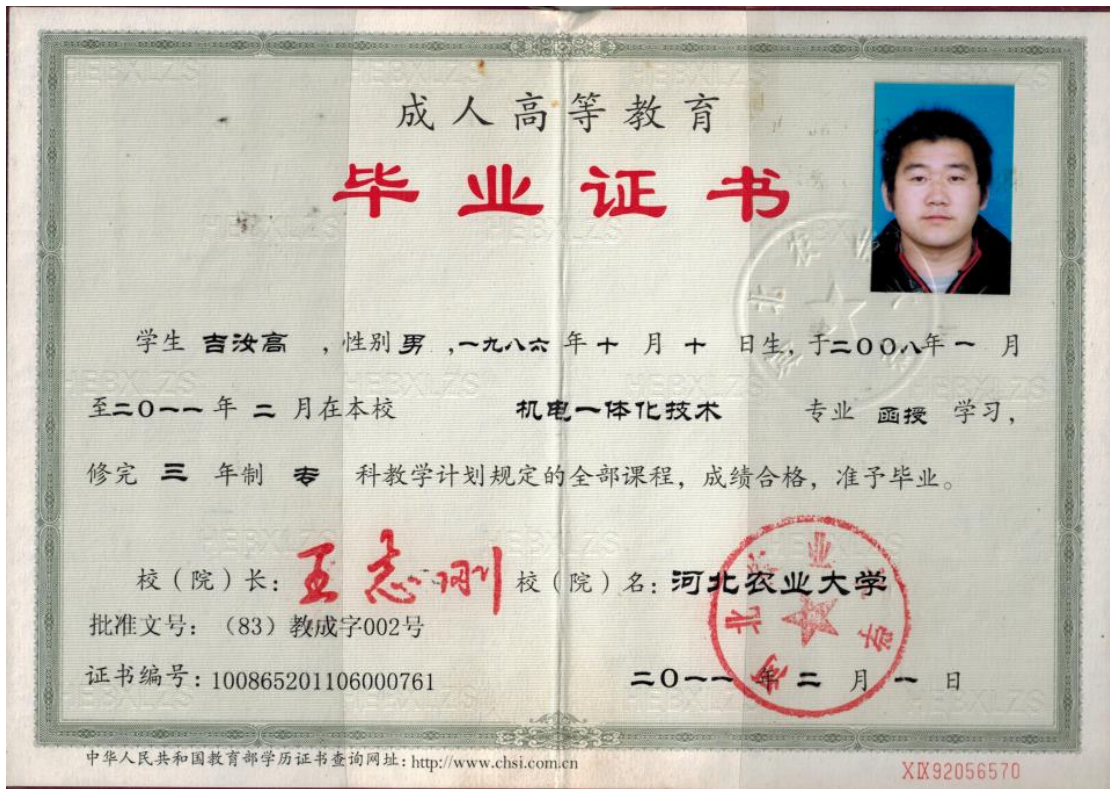 成人高等教育
毕业证书
学生 吉汝高 ,性别 男 ,一九八六 年 十 月 十 日生, 于二〇〇八年 一 月
至二〇一一 年 二 月在本校 机电一体化技术 专业 函授 学习,
修完 三 年制 专 科教学计划规定的全部课程, 成绩合格, 准予毕业。
校(院)长: 王志刚 校(院)名: 河北农业大学
批准文号: (83) 教成字002号
证书编号: 100865201106000761 二〇一一 年 二 月 一 日
中华人民共和国教育部学历证书查询网址: http://www.chsi.com.cn
XIX92056570
HEBXLZS